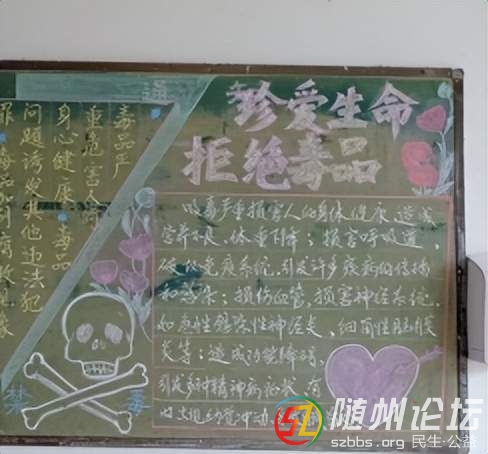 珍爱生命
拒绝毒品
毒品严
重危害人
身心健康
毒品
问题诱发其他违法犯
罪
吸毒严重损害人的身体健康 造成
营养不良、体重下降；损害呼吸道，
破坏免疫系统，引发许多疾病的传播
和感染；损伤血管，损害神经系统，
如急性感染性神经炎、细菌性脑膜
炎等；造成功能障碍，
引发多种精神病症状
出现幻觉冲动
禁
毒
随州论坛
szbbs.org 民生·公益